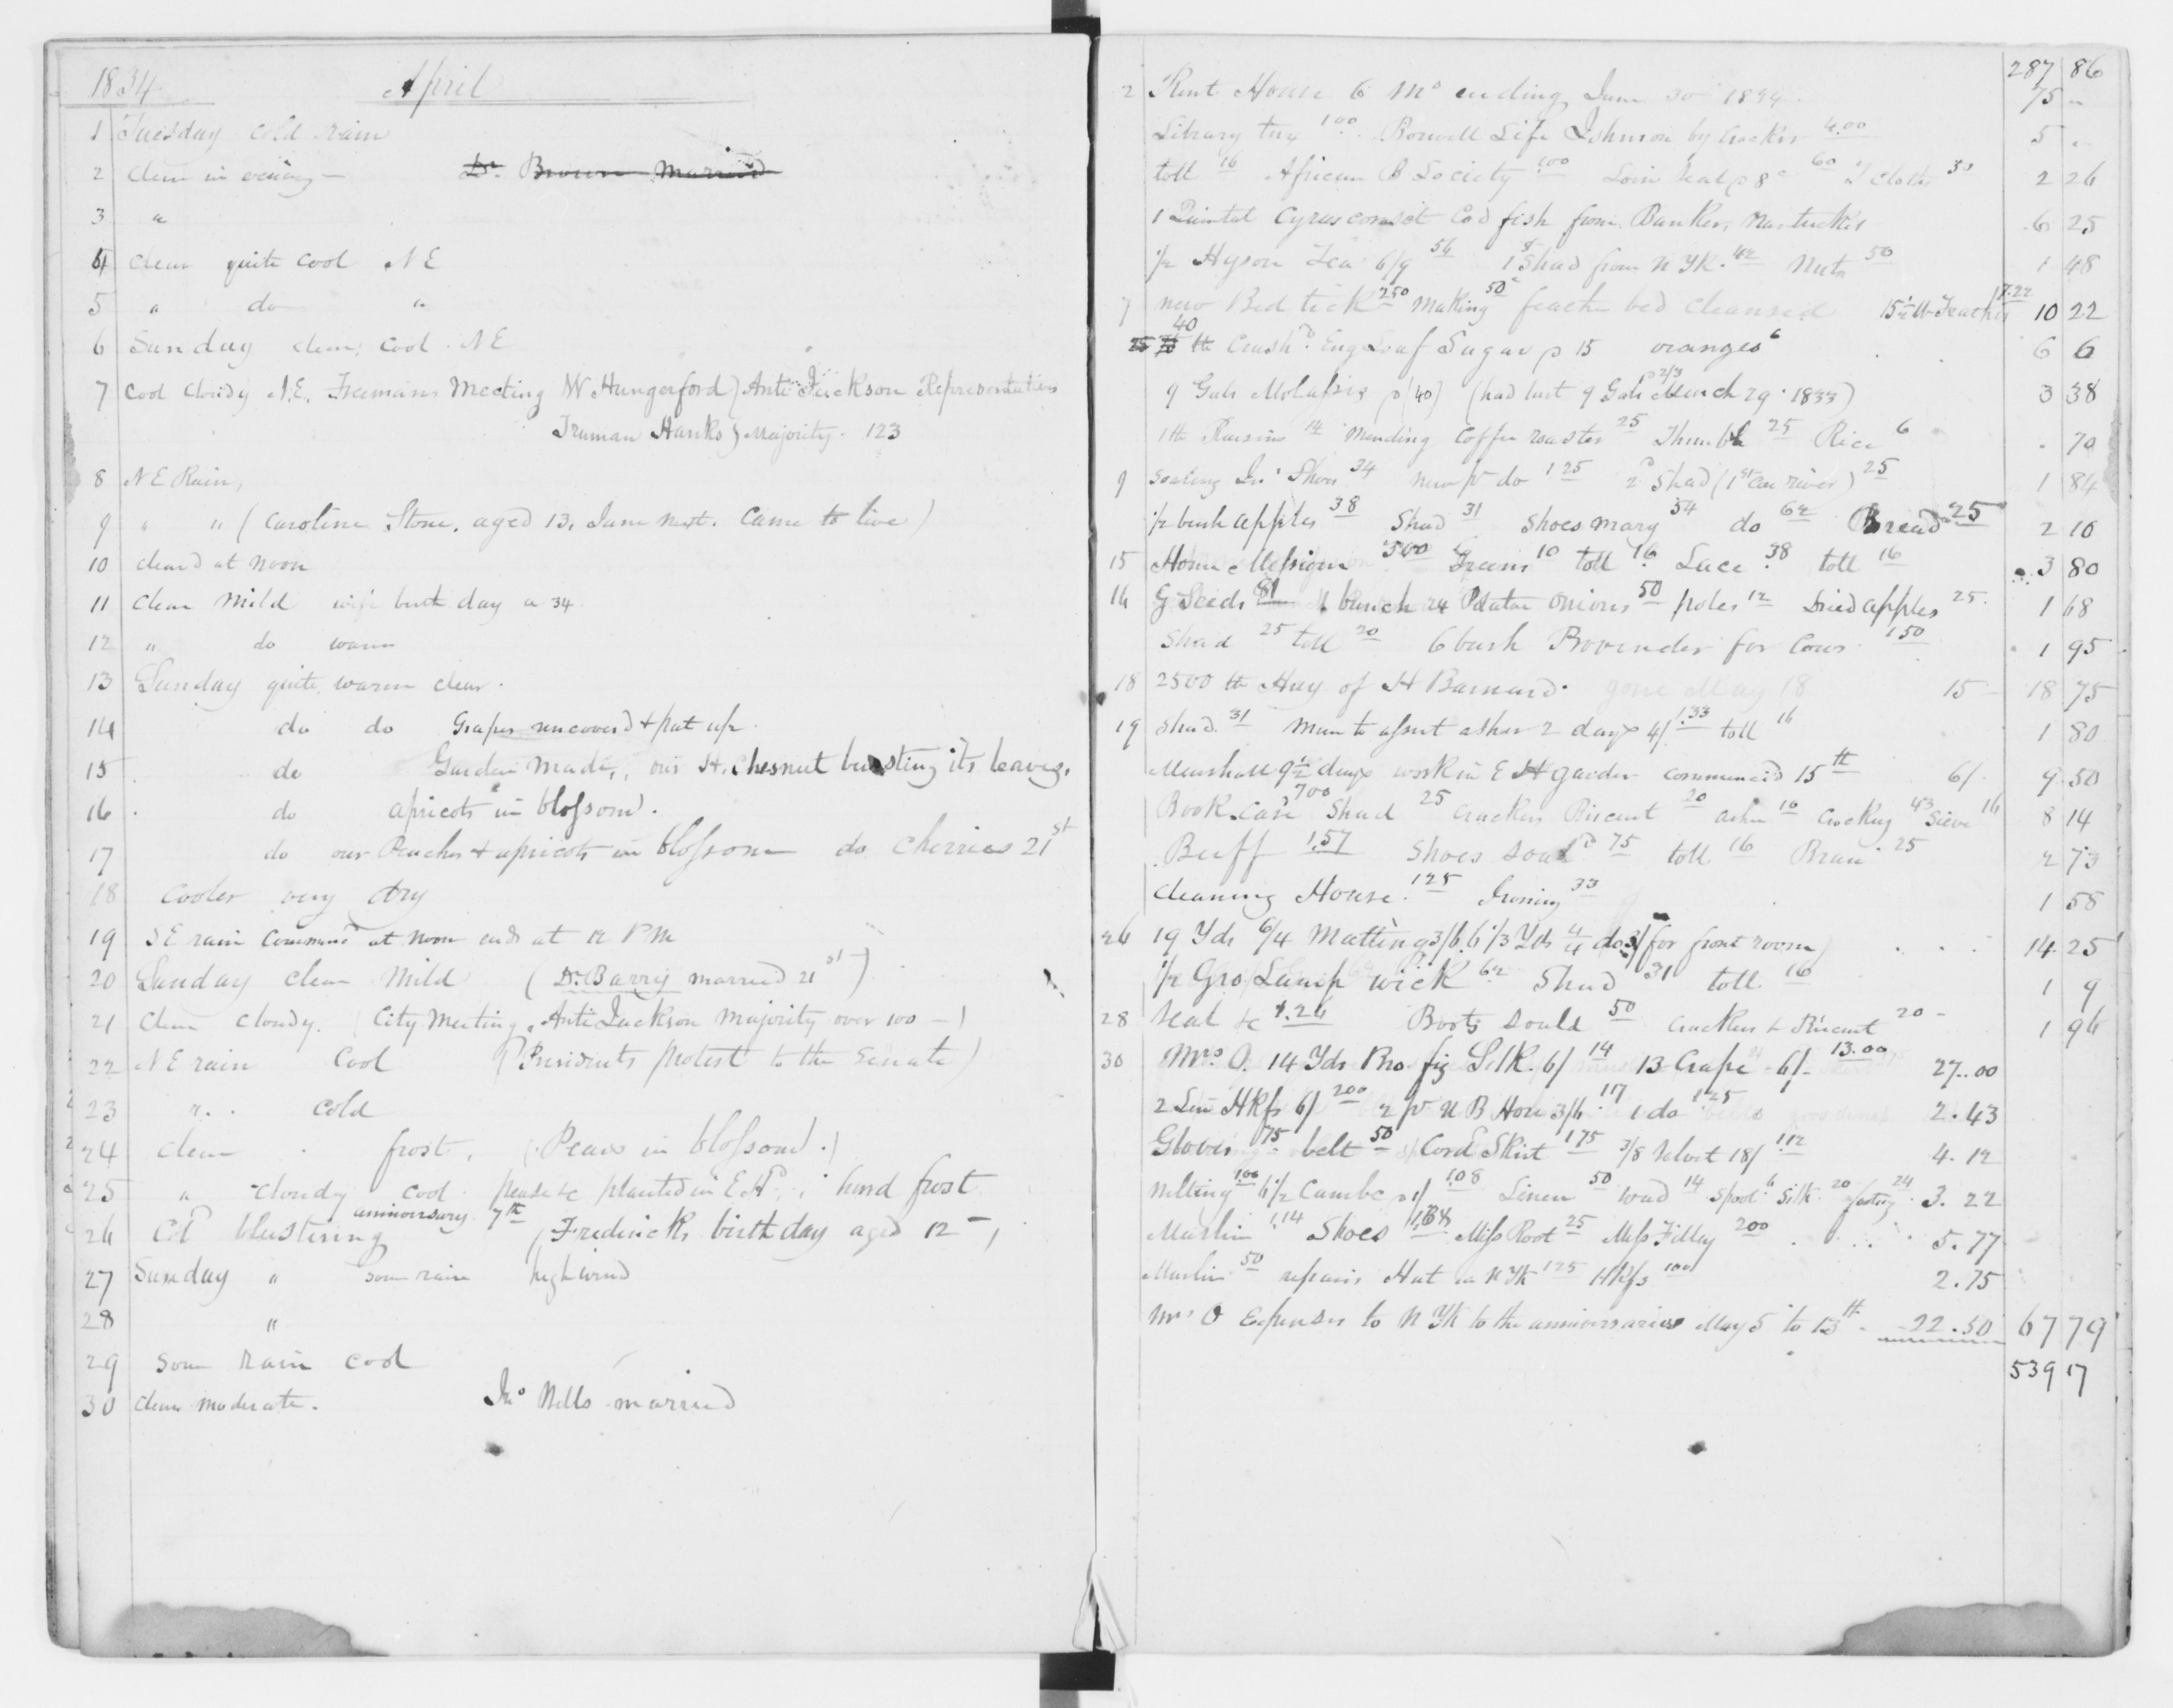 1834 April
1 Tuesday cold rain
2 Clear in evening — Dr. Brown Married
3 "
4 Clear quite cool N E
5 " do "
6 Sunday clear, cool. N E
7 Cool Cloudy N.E. Freemans Meeting W Hungerford } Anti Jackson Representatives
Truman Hanks } Majority. 123
8 N E Rain,
9 " " (Caroline Stone, aged 13, June next. Came to live)
10 cleard at noon
11 Clear Mild wife birth day a 34
12 " do warm
13 Sunday quite warm clear.
14 do do Grapes uncoverd & put up
15 do Garden Made, our H. Chesnut bursting its leaves.
16 do apricots in blossom.
17 do our Peaches & apricots in blossom do Cherries 21st
18 Cooler very dry
19 S E rain commencd at noon ends at 12 P M
20 Sunday clear Mild (Dr. Barry married 21st)
21 Clear Cloudy. (City Meeting, Anti Jackson Majority over 100 —)
22 N E rain Cool (Presidents protest to the Senate)
23 ". . cold
24 Clear . frost, (Pears in blossom.)
25 " cloudy cool. pease &c planted in E.H. hard frost
anniversary 7th
26 Cold blustering (Fredericks birth day aged 12 —)
27 Sunday " som rain high wind
28 "
29 Som rain cool
30 Clear moderate. Jno Wells married
287 86
2 Rent House 6 Mo ending June 30 1834 75 "
Library tax 1 00 Boswell Life Johnson by Crocker 4.00 5 "
toll 16 African B Society 1 00 Loin Veal p 8c 60 Cloth 30 2 26
1 Quintal Cod fish from Banker, 6 25
1/2 Hyson Tea 6/9 56 1 Shad from N Yk. 42 Nuts 50 1 48
7 new Bed tick 2 50 Making 50 feath bed cleansed 15 1/2 lb Feathers 7.22 10 22
40 lb Crushd Eng Loaf Sugar p 15 oranges 6 6 6
9 Gals Molasses p (40) (had last 9 Gals March 29. 1833) 3 38
1 lb Raisins 14 Mending Coffee roaster 25 Thimble 25 Rice 6 . 70
9 Soaling Shoes 34 new pr do 1 25 2d Shad (1st Con river) 25 1 84
1/2 bush apples 38 Shad 31 Shoes mary 54 do 62 Bread 25 2 10
15 Home Mission 3 00 Greens 10 toll 16 Lace 38 toll 16 3 80
16 G Seeds 81 1 bunch 24 Potatoe Onions 50 poles 12 Dried apples 25 1 68
Shad 25 toll 20 6 bush Provender for Cows 1 50 1 95
18 2500 lb Hay of H Barnard. gone May 18 15 — 18 75
19 Shad 31 Man to assist asher 2 days 4/ 1.33 toll 16 1 80
Marshall 9 1/2 days work in E H garden commenced 15th 6/ 9.50
Book-Case 7 00 Shad 25 Crackers Biscuit 20 asher 10 Crockery 43 Sieve 16 8 14
Beeff 1.57 Shoes soald 75 toll 16 Bran 25 2 73
Cleaning House 1 25 Ironing 33 1 58
26 19 Yds 6/4 Matting 3/6. 6 1/3 Yds 4/4 do 3/ for front room) 14.25
1/2 Gro Lamp wick 62 Shad 31 toll 16 1 9
28 Veal &c 1.26 Boots soald 50 Crackers & Biscuit 20 — 1 96
30 Mrs. O. 14 Yds Bro. fig Silk. 6/ 14 13 Crape 6/- 13.00 27..00
2 Lin Hkfs 6/ 2 00 2 pr U B Hose 3/6 1 17 1 do 1 25 2.43
Gloves 75 belt 50 Cord Skirt 1 75 3/8 Velvet 18/ 1.12 4.12
1.00 6 1/2 Cambc p 1/ 1.08 Linen 50 wad 14 Spool 6 Silk 20 24 3.22
Muslin 1.14 Shoes Miss Root 25 Miss Filley 2 00 5.77
Muslin 50 repairs Hat in N Yk 1 25 Hkfs 1 00 2.75
Mrs O Expenses to N Yk to the anniversaries May 5 to 13th 22.50 67 79
539 17